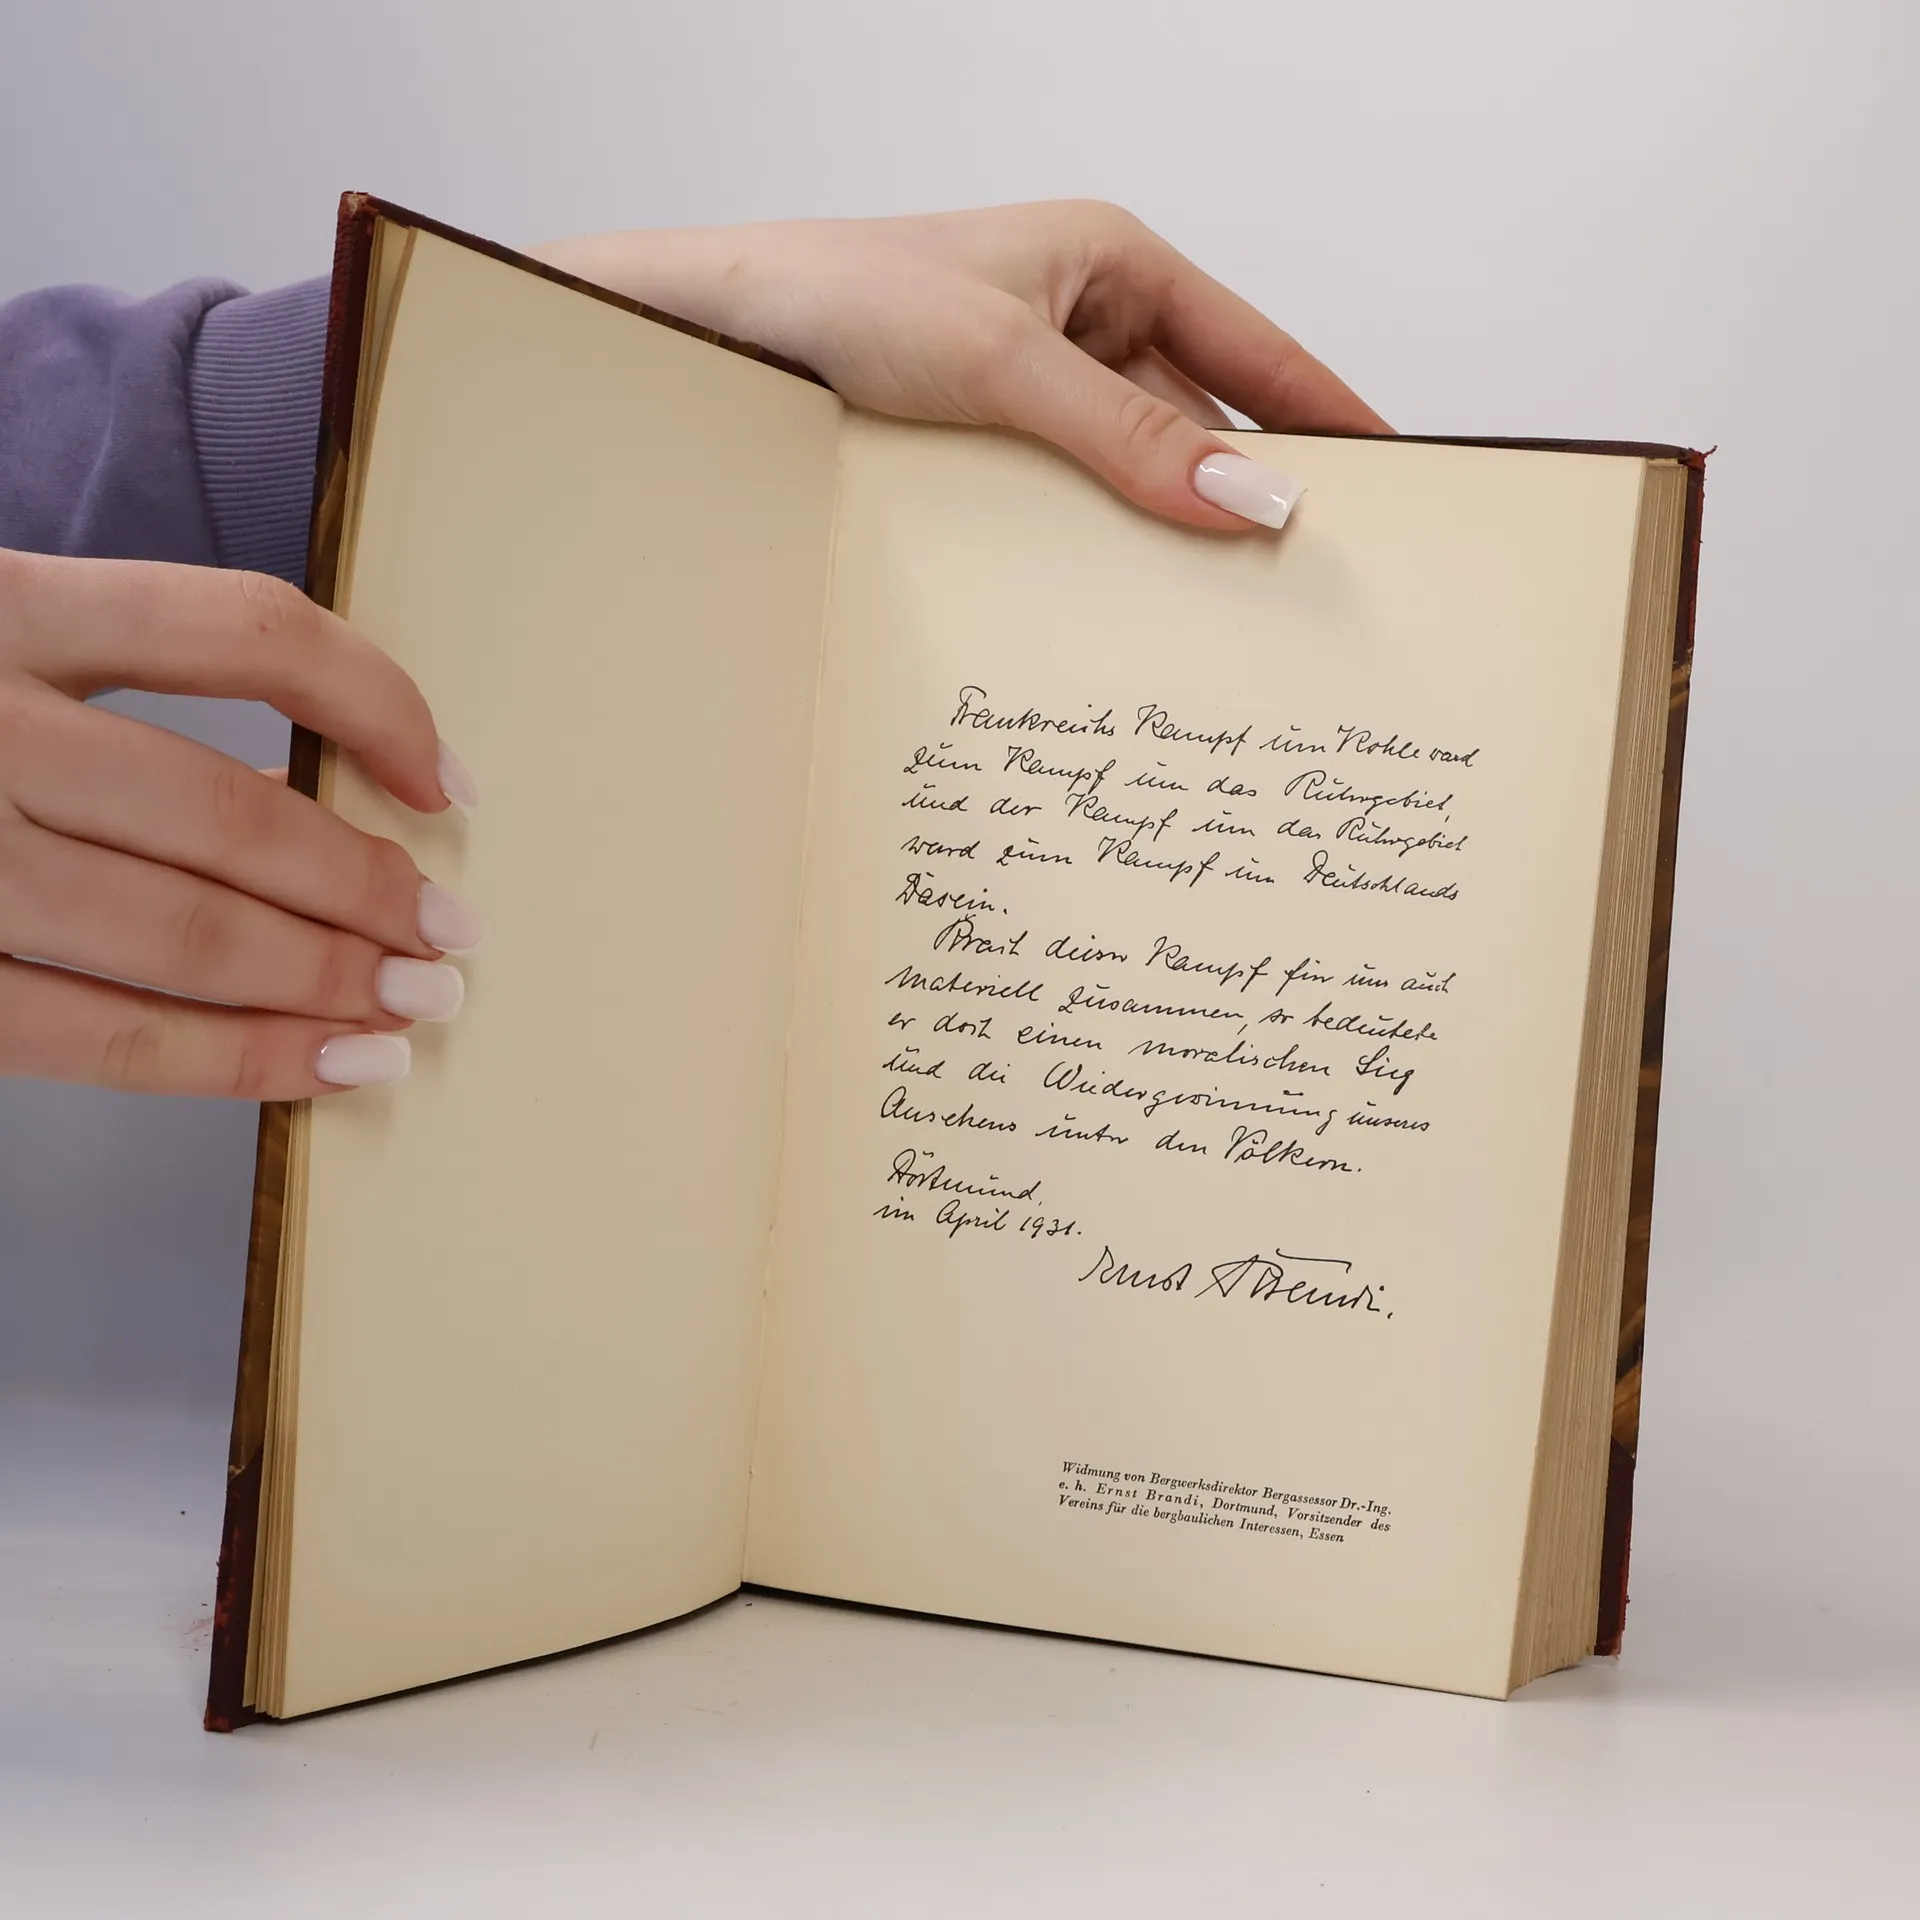 Frankreichs Kampf um Kohle ward
zum Kampf um das Ruhrgebiet,
und der Kampf um das Ruhrgebiet
ward zum Kampf um Deutschlands
Dasein.
Brach dieser Kampf für uns auch
materiell zusammen, so bedeutete
er doch einen moralischen Sieg
und die Wiedergewinnung unseres
Ansehens unter den Völkern.
Dortmund,
im April 1931.
Ernst Brandi.
Widmung von Bergwerksdirektor Bergassessor Dr.-Ing.
e. h. Ernst Brandi, Dortmund, Vorsitzender des
Vereins für die bergbaulichen Interessen, Essen